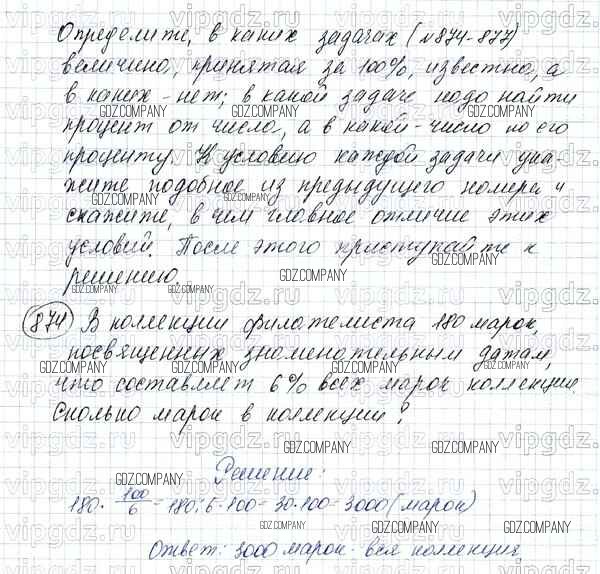 Определите, в каких задачах (№874-877)
величина, принятая за 100%, известна, а
в каких - нет; в какой задаче надо найти
процент от числа, а в какой - число по его
проценту. К условию каждой задачи ука-
жите подобное из предыдущего номера и
скажите, в чем главное отличие этих
условий. После этого приступайте к
решению.
874 В коллекции филателиста 180 марок,
посвященных знаменательным датам,
что составляет 6% всех марок коллекции.
Сколько марок в коллекции?
Решение:
180 · 100/6 = 180 : 6 · 100 = 30 · 100 = 3000 (марок)
Ответ: 3000 марок - вся коллекция